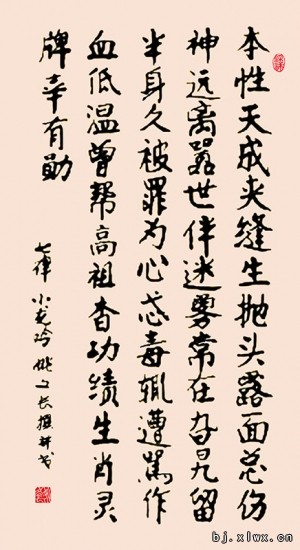 本性天成夹缝生抛头露面总伤
神远离嚣世伴迷雾常在旮旯留
半身久被罪为心忒毒辄遭骂作
血低温曾帮高祖查功绩生肖灵
牌幸有勋
七律 小龙吟 长撰并书
bj.xlwx.cn